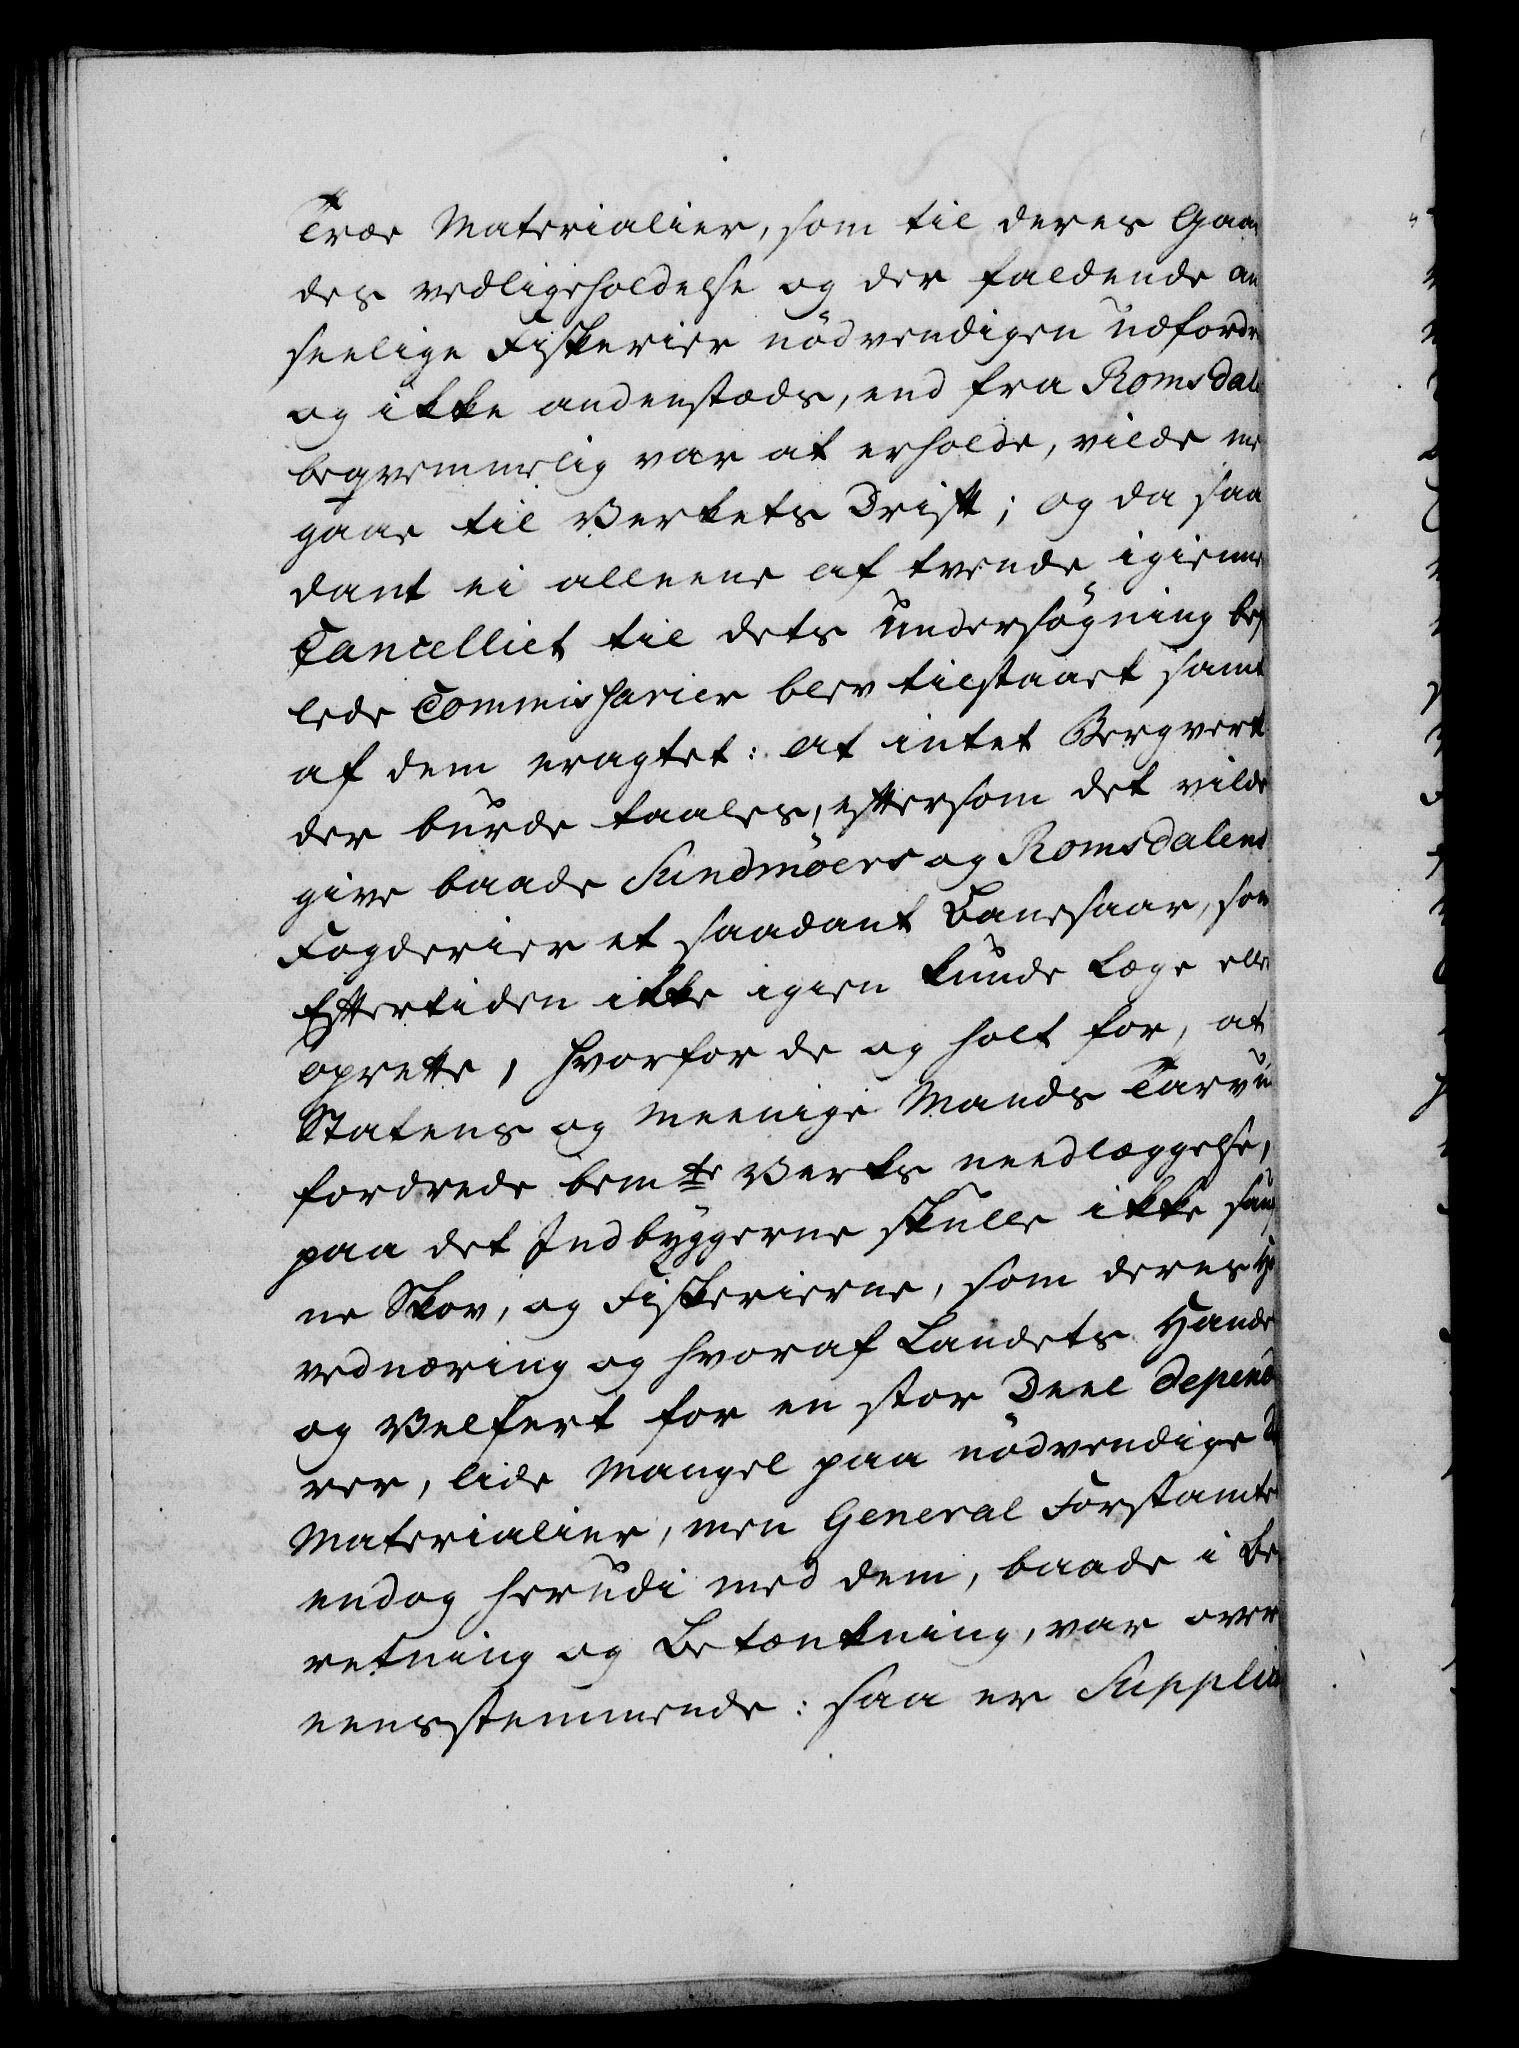 Træe Materialier, som til deres Gaar
des vedligeholdelse og der faldende an
seelige Fiskerier nödvendigen udfordre
og ikke andenstæds, end fra Romsdale
beqvemmelig var at erholde, vilde me
gaae til Verkets Drift; og da saa
dant ei alleene af tvende igienne
Cancelliet til dets undersögning bef
lede Commissarier blev tilstaaet samt
af dem eragtet: at intet Bergverk
der burde taales, eftersom det vilde
give baade Sundmöers og Romsdalens
Fogderier et saadant Banesaar, som
Eftertiden ikke igien kunde læge elle
oprette, hvorfor de og holt for, at
Statens og Meenige Mands Tarv u
fordrede bemte Verks needlæggelse,
paa det Indbyggerne skulle ikke sav
ne Skov, og Fiskerierne, som deres Ho
vednæring og hvoraf Landets Hande
og Velfert for en stor Deel depend
rer, lide Mangel paa nödvendige
Materialier, men General Forstamtet
endog herudi med dem, baade i Be
retning og Betænkning, var over
eensstemmende: saa er Supplic